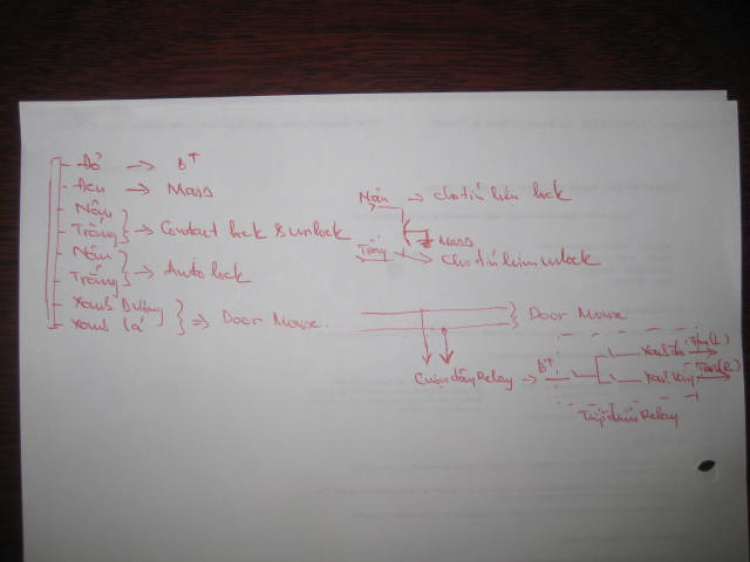 Đỏ → B+
Đen → Mass
Nâu
Trắng
→ Contact lock & unlock
Nâu
Trắng
→ Auto lock
Xanh Dương
Xanh lá
⇒ Door Mouse
Nâu → cho tín hiệu lock
Mass
Trắng → cho tín hiệu unlock
Door Mouse
Cuộn dây Relay → B+
Tiếp điểm Relay